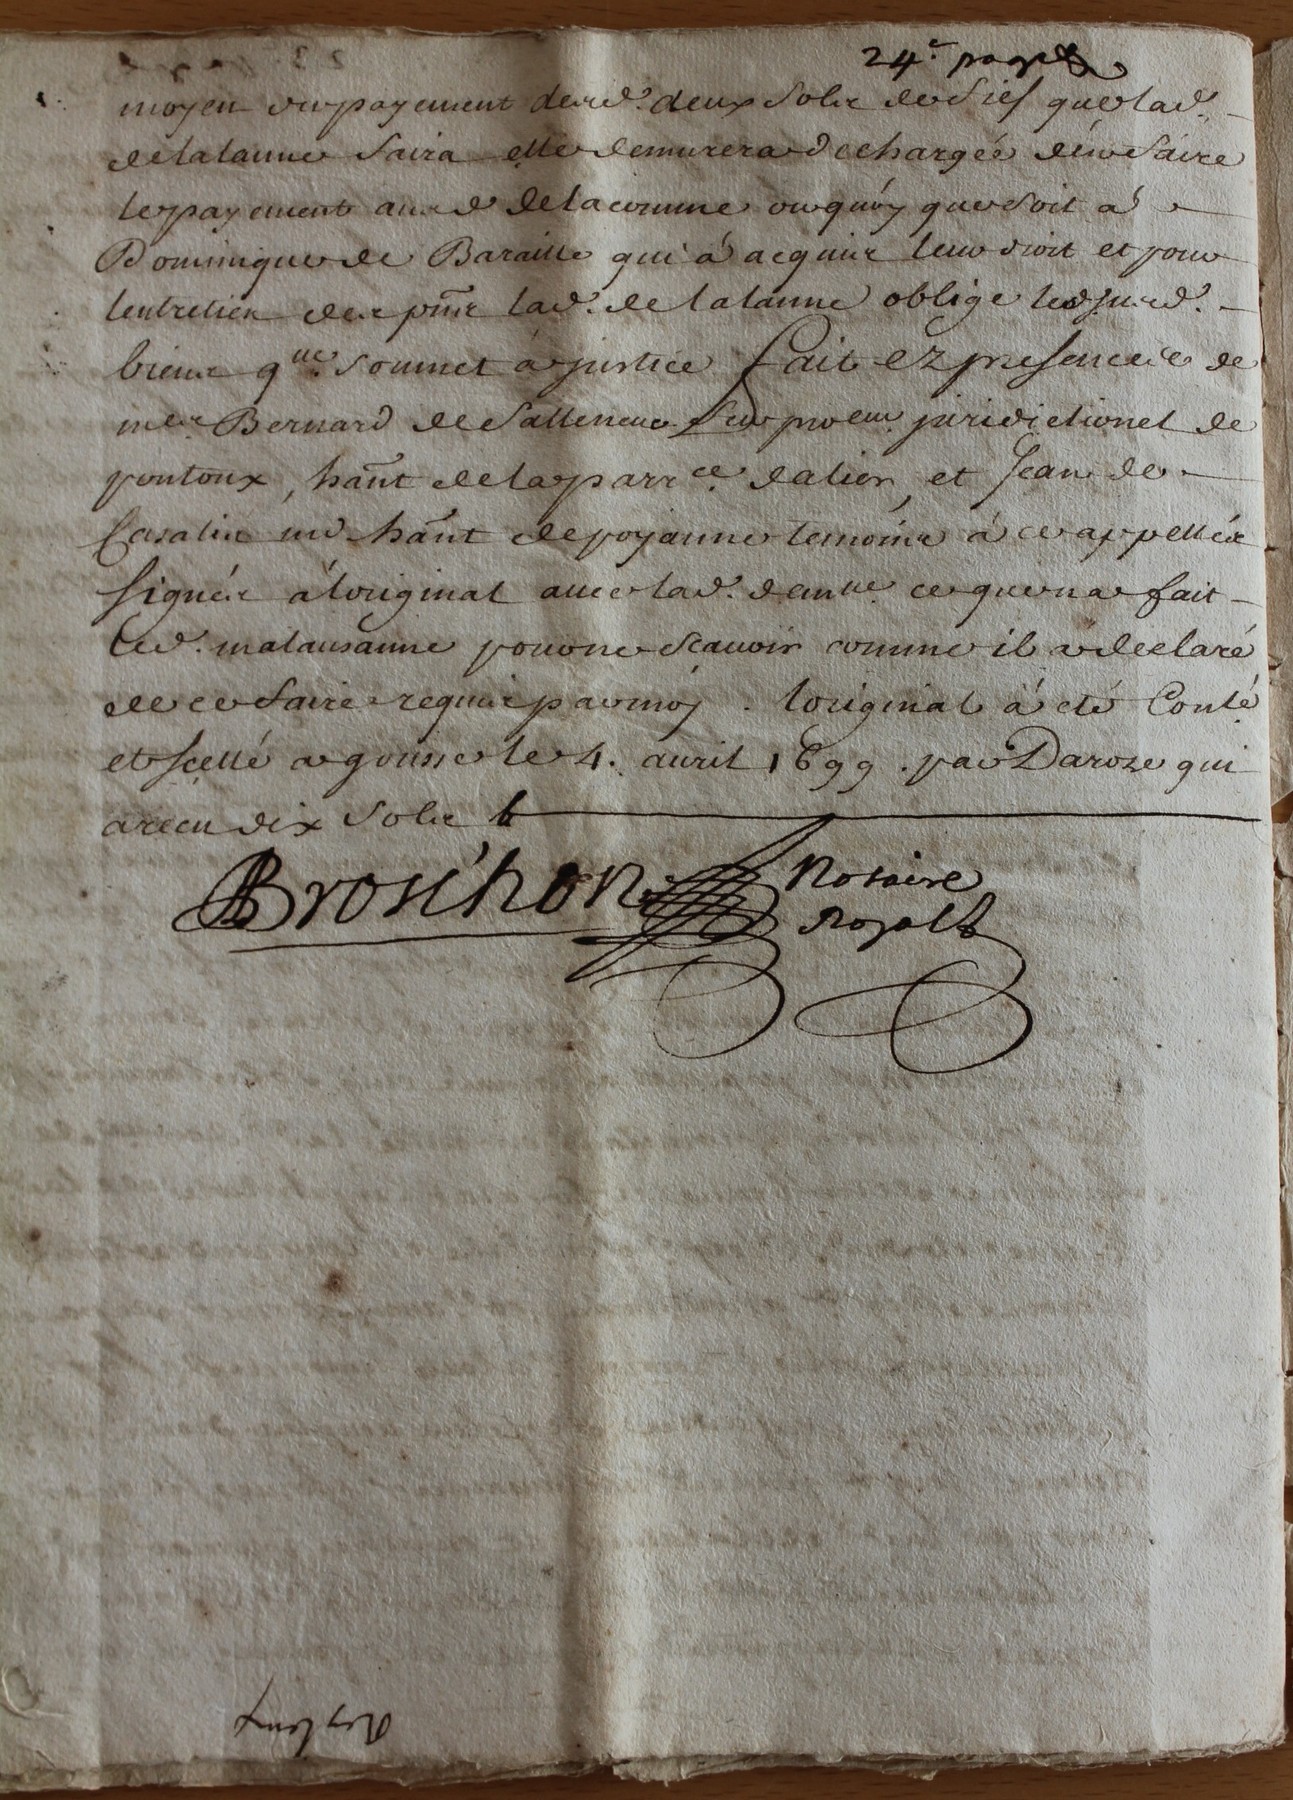 24.e page
moyen du payement desd. deux sols de fief que lad.
de lalanne faira elle demurera dechargée d'en faire
le payement aud de lacomme ou quoy que soit a
Dominique de Baraille qui à acquis leur droit et pour
lentretien des pñts lad. de lalanne oblige lesusd.
biens q.ue soumet a justice fait ez presences de
mes Bernard de Salleneuve procur. juridictionel de
pontoux, hãnt de la parr.ce dalier, et Jean de
Casalis md hãnt de poyanne temoins à ce appellés
signés à loriginal avec lad. dem.lle ce que na fait
led. malausanne pour ne scauoir comme il a declaré
de ce faire requis par moy. loriginal à eté Conté
et scellé a gousse le 4. auril 1699. par Daroze qui
a receu dix sols
Broschon Notaire
Royal